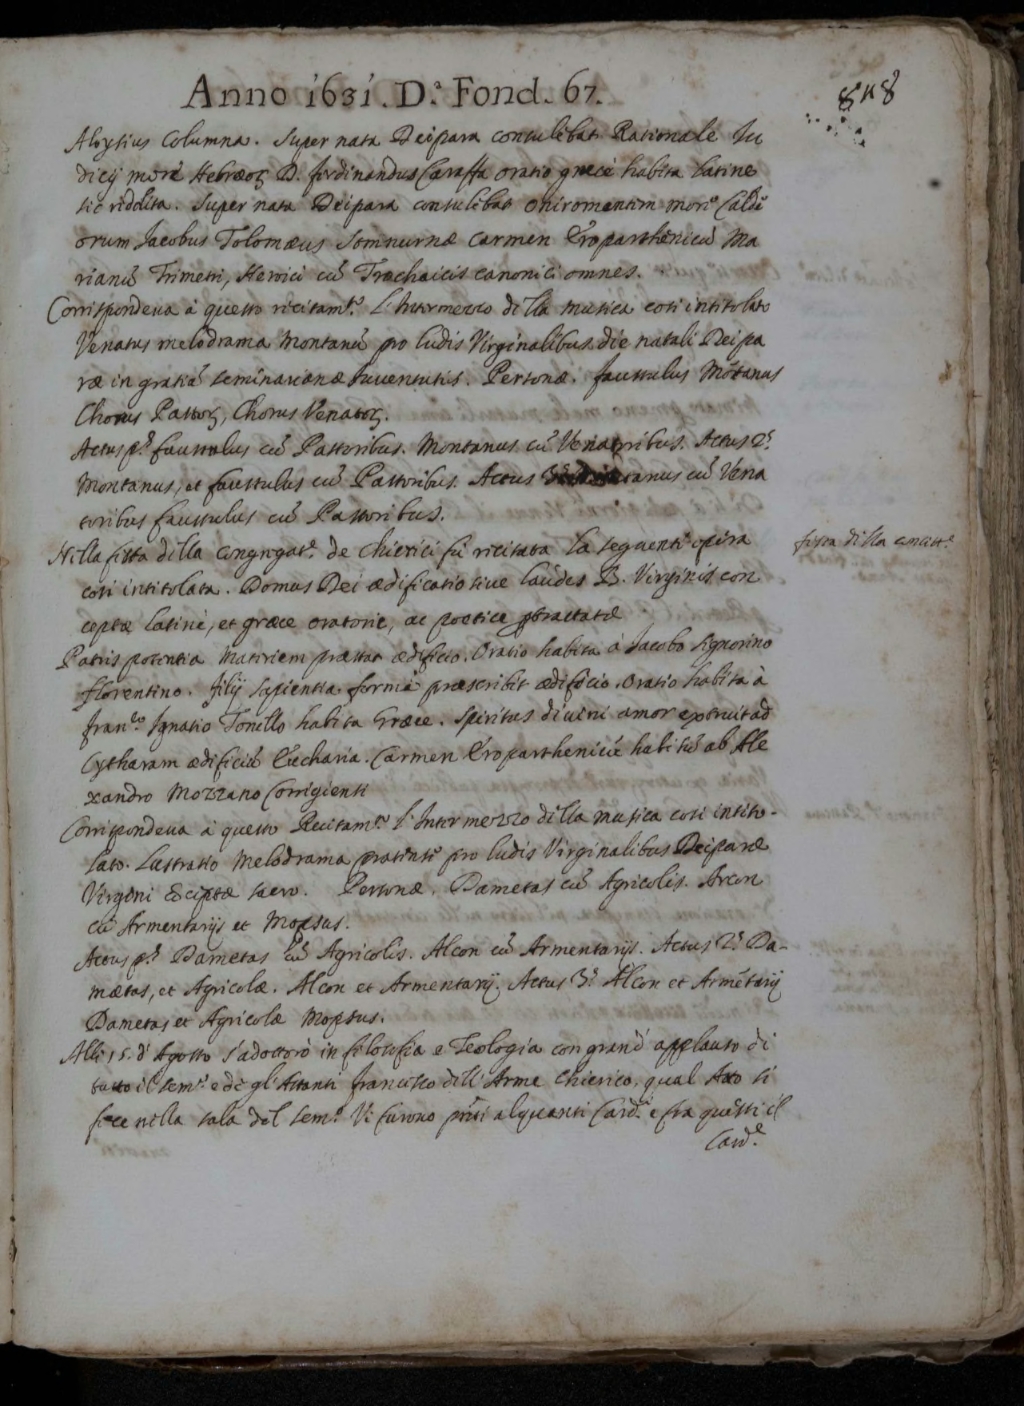 Anno 1631. D.ª Fond. 67.
848
Aloysius Columna. Super nata Deipara consulebat Rationale Iu
dicij morẽ Hebræoꝝ D. ferdinandus Caraffa oratio grecè habita latine
sic reddita. Super nata Deipara consulebat oniromantim more Caldę
orum Jacobus Tolomæus Somnurnæ carmen Eroparthenicũ Ma
rianũ Trimetri, Heroici cũ Trochaicis canonici omnes.
Corrispondeua à questo recitam.to l'Intermezzo della musica così intitolato
Venatus melodrama Montanũ pro ludis Virginalibus die natali Deipa
ræ in gratiã seminarianæ Iuventutis. Personæ. faustulus Mõtanus
Chorus Pastoꝝ, Chorus Venatoꝝ.
Actus p.s faustulus cũ Pastoribus. Montanus cũ Venatoribus. Actus 2.s
Montanus, et faustulus cũ Pastoribus. Actus 3.s tanus cũ Vena
toribus faustulus cũ Pastoribus.
Nella festa della congregat.e de Chierici fù recitata la seguente opera
così intitolata. Domus Dei ædificatio siue laudes B. Virginis con
ceptæ latinè, et græce oratorie, ac poetice ptractatæ
festa della concett.e
Patris potentia materiem præstat ædificio. Oratio habita à Jacobo Signorino
florentino. filij sapientia formã præscribit ædificio. Oratio habita à
fran.co Ignatio Tonello habita Græce. Spiritus diuini amor exstruit ad
Cytharam ædificiũ Eucharia. Carmen Eroparthenicũ habitũ ab Ale
xandro Mozzano Corrigienti
Corrispondeua à questo Recitam.to l'Intermezzo della musica così intito-
lato. Lustratio Melodrama pro ludis Virginalibus Deiparæ
Virgini cõceptæ sacro. Personæ. Dametas cũ Agricolis. Arcon
cũ Armentarijs et Mopsus.
Actus p.s Dametas cũ Agricolis. Alcon cũ Armentarijs. Actus 2.s Da-
mætas, et Agricolæ. Alcon et Armentarij. Actus 3.s Alcon et Armẽtarij
Dametas et Agricolæ Mopsus.
Alli 15. d'Agosto s'adottorò in filosofia e Teologia con grand'applauso di
tutto il sem.o e de gl'Astanti francesco dell'Arme Chierico, qual Atto si
fece nella sala del sem.o Vi furono pñti alquanti Card.i e fra questi il
Card.e